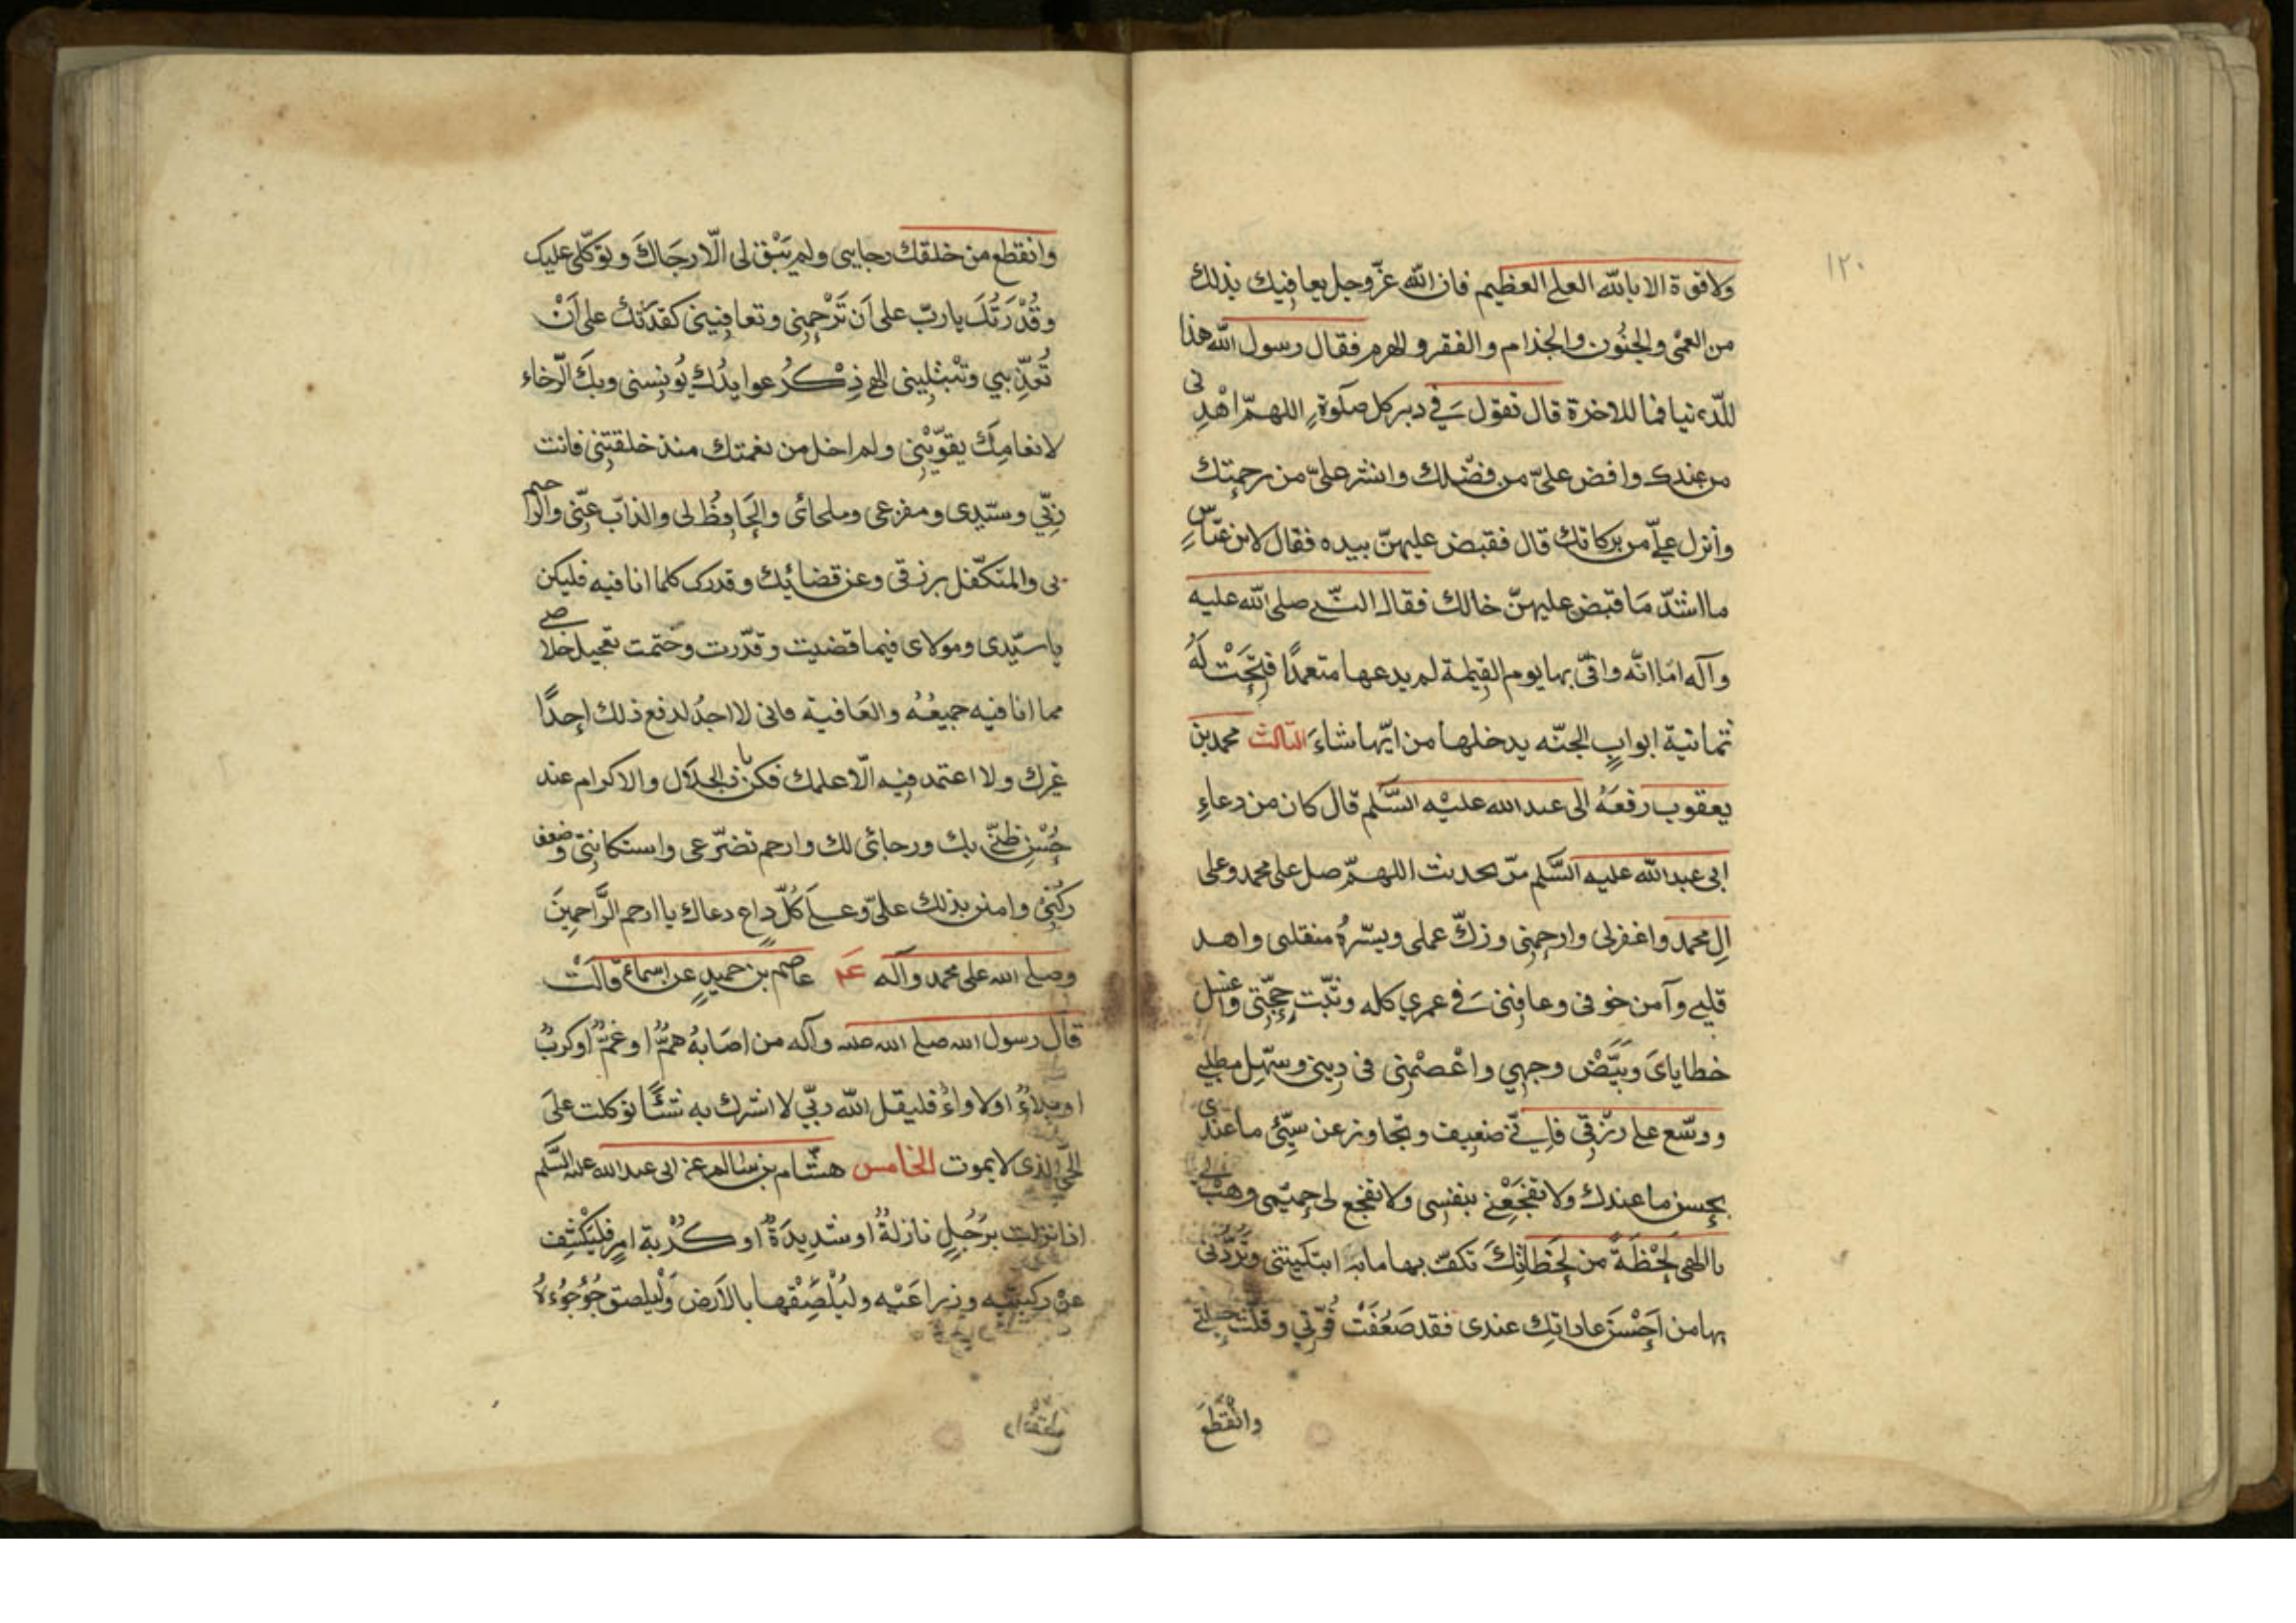 ١٢٠
ولا قوة الا بالله العلي العظيم فان الله عزّ وجل يعافيك بذلك
من العمى والجنُون والجذام والفقر والهرم فقال رسول الله هذا
للدّنيا فما للاخرة قال تقول في دبر كل صلوةٍ اللهمّ اهْدِنى
من عندك وافض علىّ من فضلك وانشر علىّ من رحمتك
وأنزل علىّ من بركاتك قال فقبض عليهنّ بيده فقال لابن عبّاسٍ
ما اشدّ مَا قبض عليهنّ خالك فقال النبي صلى الله عليه
وآله امَا انّه وافىٰ بها يوم القيٰمة لم يدعها متعمدًا فُتِحَتْ لَهُ
ثمانية ابوابِ الجنّه يدخلها من ايّها شاءَ الثالث محمد بن
يعقوب رفعَهُ الى عبد الله عليْه السَّلم قال كان من دعاءِ
ابى عبد الله عليه السَّلم اللهمّ صل على محمد وعلى
الِ محمد واغفرلى وارحمِنى وزكّ عملى ويسّر منقلبى واهد
قلبي وآمن خوفى وعافِنى في عمري كله وثبّت حجّتى واغسل
خطاياىَ وبَيَّضْ وجهي واعْصمْنِى فى دِينى وسهّل مطلبي
ووسّع على رزْقِى فإني ضعيف وتجاوز عن سيّئ ما عندى
بحسن ما عندك ولا تفجَعْنى بنفسِى ولا تفجع لى حميّمى وهَبْ لى
يا الهى لَحْظَةً من لَحَظاتِكَ تكفّ بها ما به ابتليتنى وتَرُدّنى
بها من اَحْسَن عاداتِك عندى فقد ضَعُفَتْ قُوّتِي وقلّت حيلتي
وانْقَطَعَ
وانقطع من خلقك رجايى ولم يَبْق لى الّا رجَاكَ وتوَكّلى عليك
وقُدْرَتُكَ يا ربّ على اَن تَرْحمِنى وتعافِينى كقدرتك على اَنْ
تُعذّبنِي وتَبْتليِنى الهى ذِكْرُ عوايدُك يُونِسنى وبكَ الرّخاء
لانعامِك يقوّيْنِى ولم اخل من نعمتك منذ خلقتِنى فانت
ربِّي وسيّدِى ومفزعى وملجائى والحَافِظُ لى والذابّ عنّى والراحم
بى والمتكفّل برزقى وعن قضائِك وقدرك كلما انا فيه فليكن
يا سيّدى ومولاى فيما قضيت وقدّرت وحتمت تعجيل خلاصى
مما انا فيه جميعُه والعَافية فانى لا اجدُ لدفع ذلك احدًا
غيرك ولا اعتمد فيه الّا عليك فكن يا ذا الجلال والاكرام عند
حُسْن ظنّى بك ورجائى لك وارحم تضرّعى واستكانتِى وضعف
ركْنِى وامنن بذلك علىّ وعلىٰ كُلّ داعٍ دعاك يا ارحم الرَّاحمِينَ
وصلى الله على محمد وآله ع۴ عاصم بن حميدٍ عن اسماء قالَتْ
قال رسول الله صلى الله عليه وآله من اصَابهُ همٌّ او غمٌّ او كربٌ
او بلاءٌ او لاواءٌ فليقل الله ربّي لا اشرك به شيئًا توكلت علىَ
الحىّ الذى لا يموت الخامس هشام بن سالم عن ابى عبد الله عليه السَّلم
اذا نزلت برَجُلٍ نازلةٌ او شدِيدَةٌ او كُرْبة امرٍ فليَكْشِف
عن ركبتيه وذراعَيْه وليُلْصِقْها بالاَرض وَليلصق جُؤْجُؤءهُ